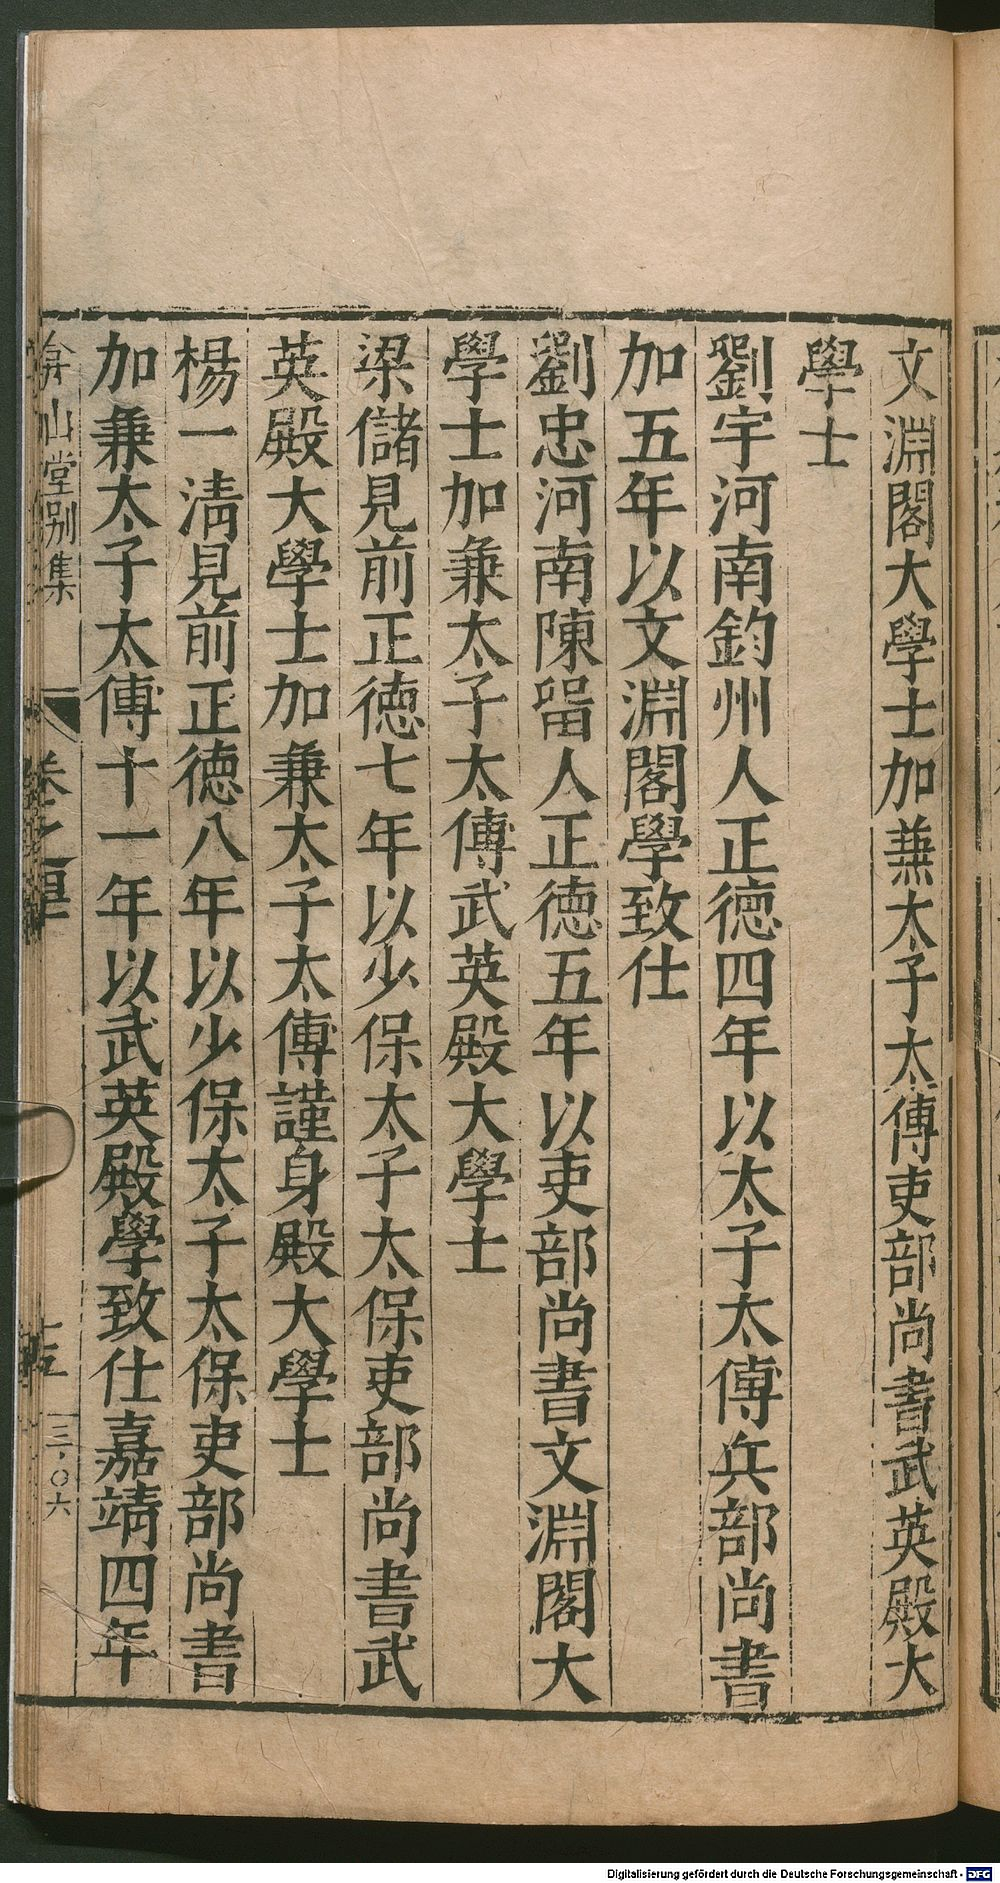 文淵閣大學士加兼太子太傅吏部尚書武英殿大
學士
劉宇河南鈞州人正德四年以太子太傅兵部尚書
加五年以文淵閣學致仕
劉忠河南陳留人正德五年以吏部尚書文淵閣大
學士加兼太子太傅武英殿大學士
梁儲見前正德七年以少保太子太保吏部尚書武
英殿大學士加兼太子太傅謹身殿大學士
楊一清見前正德八年以少保太子太保吏部尚書
加兼太子太傅十一年以武英殿學致仕嘉靖四年
弇山堂别集
卷之
三·〇六
Digitalisierung gefördert durch die Deutsche Forschungsgemeinschaft - DFG